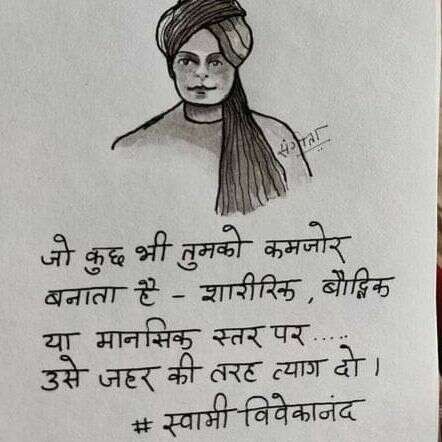 संगीता
जो कुछ भी तुमको कमजोर
बनाता है - शारीरिक, बौद्धिक
या मानसिक स्तर पर .....
उसे जहर की तरह त्याग दो।
# स्वामी विवेकानंद